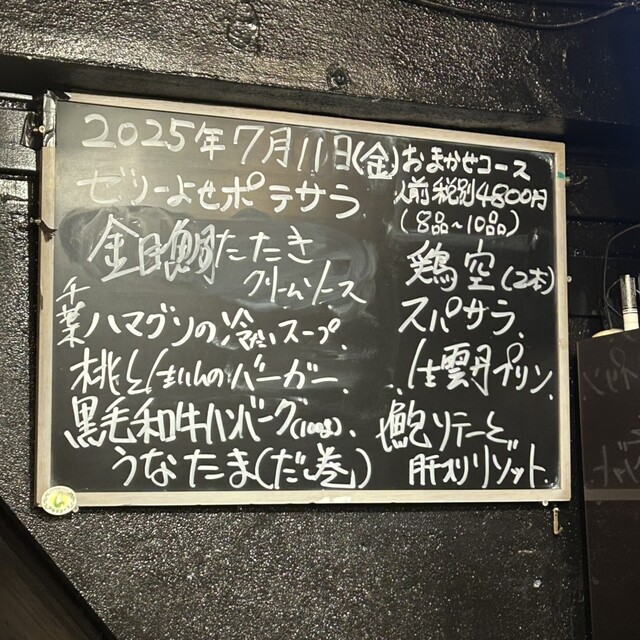 2025年7月11日(金)
ゼリーよせポテサラ
金目鯛たたき
クリームソース
千葉ハマグリの冷たいスープ.
桃と生ハムのバーガー.
黒毛和牛ハンバーグ(100g).
うなたま(だし巻)
おまかせコース
1人前税別4800円
(8品~10品)
鶏空(2本)
スパサラ.
生雲丹プリン.
鮑ソテーと
肝入りリゾット.